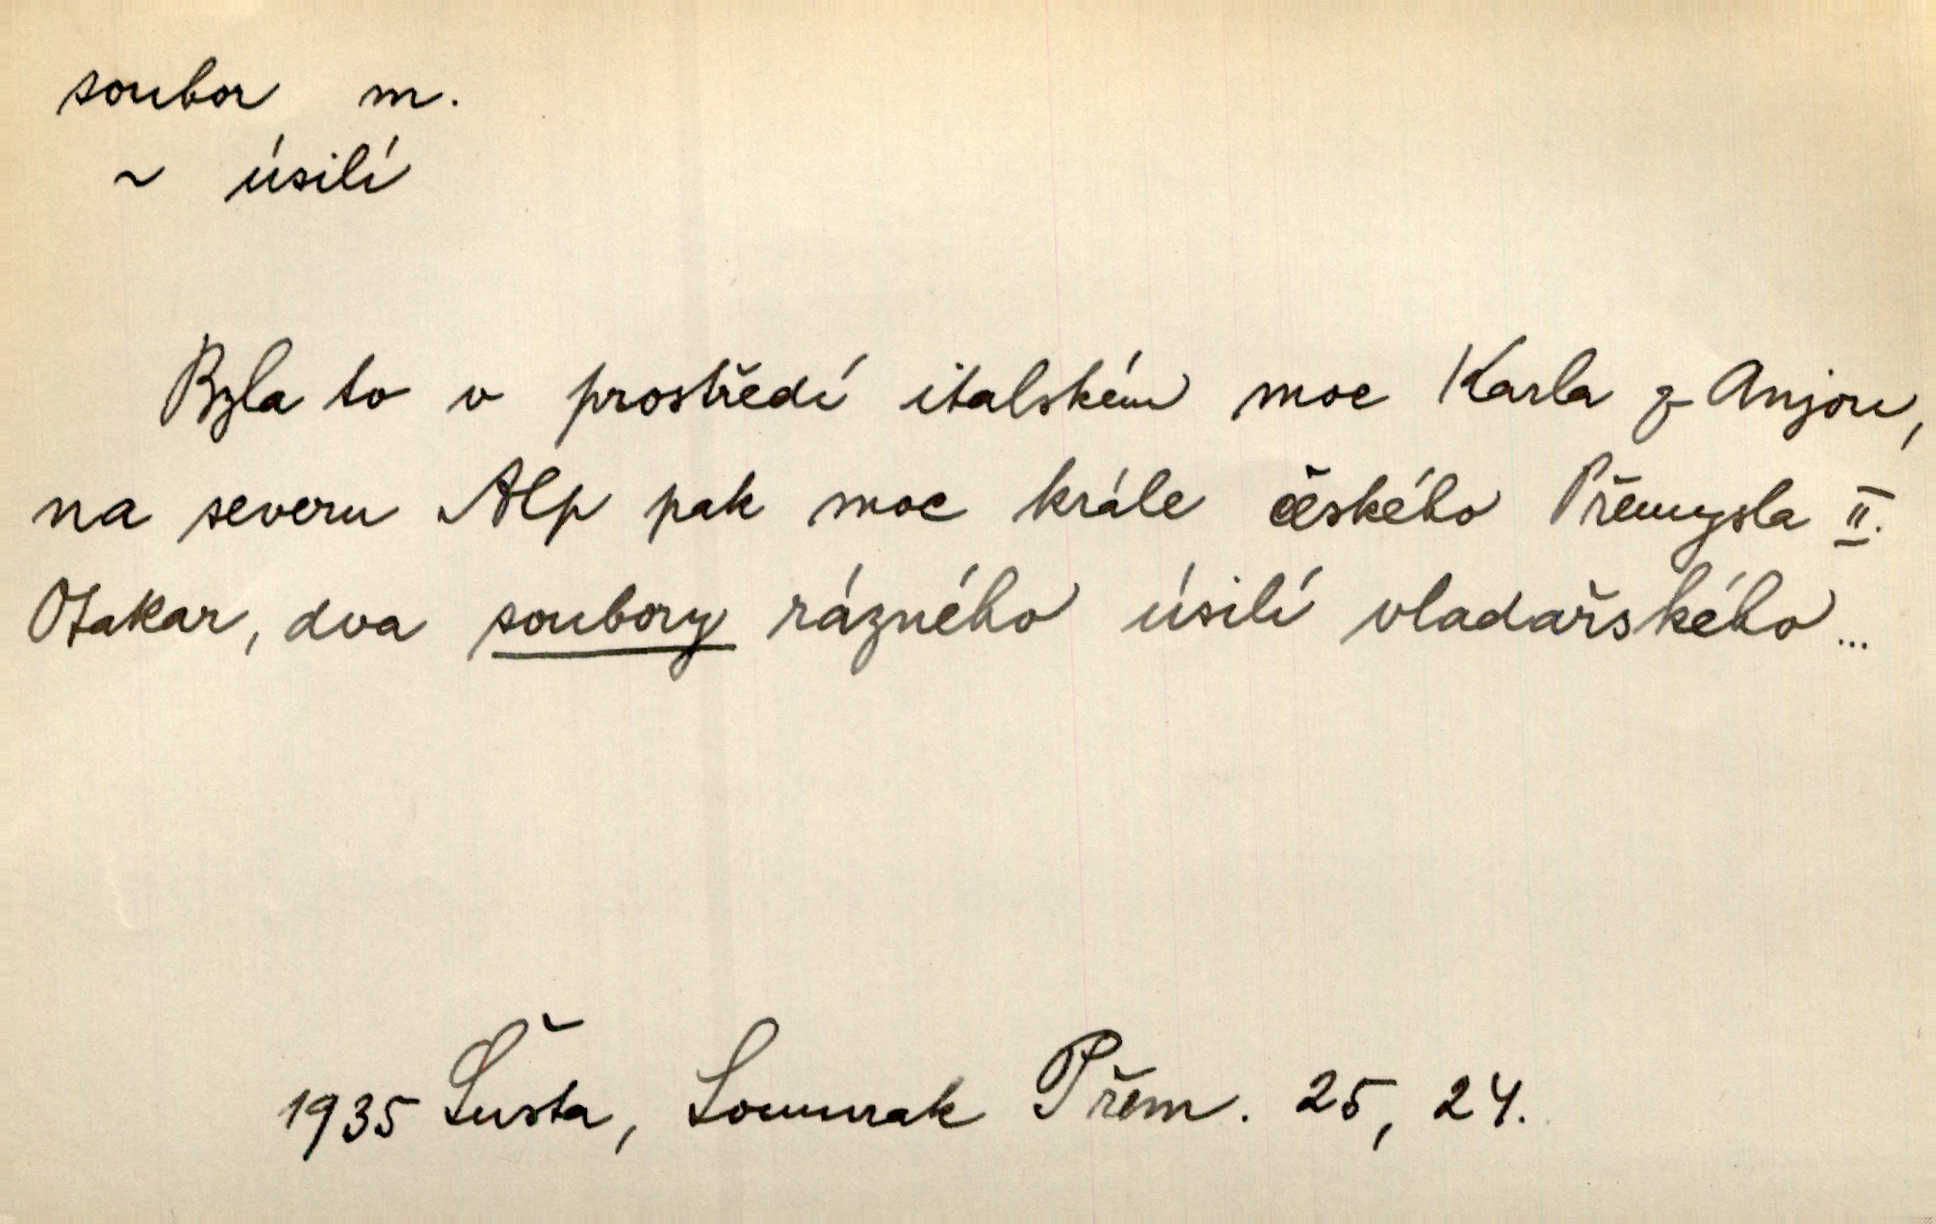 soubor m.
~ úsilí
Byla to v prostředí italském moc Karla z Anjou,
na severu Alp pak moc krále českého Přemysla II.
Otakar, dva soubory rázného úsilí vladařského...
1935 Šusta, Soumrak Přem. 25, 24.